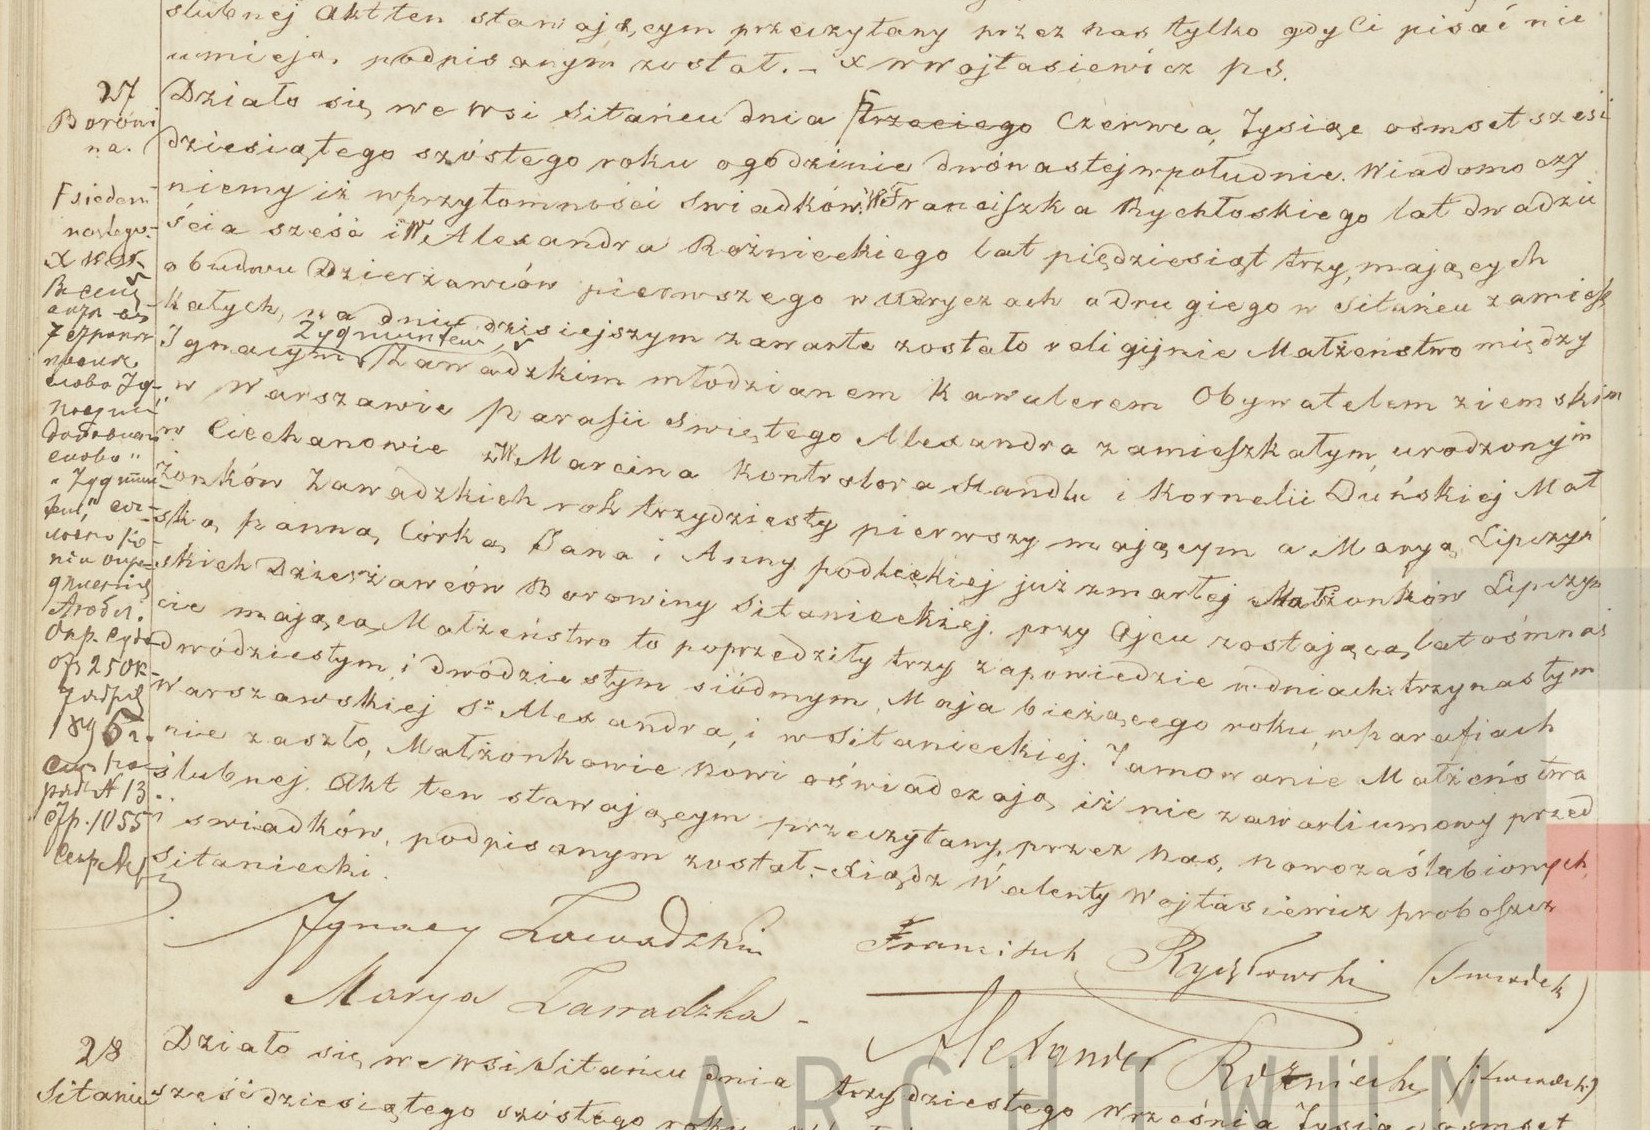 ślubnej Akt ten stawającym przeczytany przez nas tylko gdy Ci pisać nie
umieją, podpisanym został. – X W Wojtasiewicz ps.
27
Borowi
na.
Działo się we wsi Sitańcu dnia trzeciego Czerwca, Tysiąc ośmset sześć
dziesiątego szóstego roku o godzinie dwónastej w południe. Wiadomo czy
niemy iż w przytomności Świadków: W Franciszka Rychłoskiego lat dwadzie
ścia sześć i W Alexandra Rożnieckiego lat pięćdziesiąt trzy, mających
obudwu Dzierżawców pierwszego w Udryczach a drugiego w Sitańcu zamiesz
kałych, na dniu dzisiejszym zawarte zostało religijnie Małżeństwo między
Zygmuntem
Ignacym Zawadzkim młodzianem Kawalerem Obywatelem ziemskim
w Warszawie Parafii Świętego Alexandra zamieszkałym, urodzonym
w Ciechanowie z W Marcina Kontrolora Handlu i Kornelii Duńskiej Mał
żonków Zawadzkich rok trzydziesty pierwszy mającym a Maryą Lipczyń
ską, panną, Córką, Jana i Anny podleckiej już zmarłej Małżonków Lipczyń
skich Dzierżawców Borowiny Sitanieckiej. przy Ojcu zostającą, lat ośmnaś
cie mającą, Małżeństwo to poprzedziły trzy zapowiedzie w dniach: trzynastym
dwódziestym, i dwódziestym siódmym, Maja bieżącego roku, w parafiach
Warszawskiej Sº Alexandra, i w Sitanieckiej. Tamowanie Małżeństwa
nie zaszło, Małżonkowie nowi oświadczają, iż nie zawarli umowy przed
ślubnej. Akt ten stawającym przeczytany, przez nas, nowozaślubionych,
i świadków, podpisanym został. – Xiądz Walenty Wojtasiewicz proboszcz
Sitaniecki.
F siedem
nastego.
Zygmun
1895 r.
N 13
1055
Ignacy Zawadzki
Franciszek Rychłowski (świadek)
Marya Zawadzka –
Alexander Rożniecki (świadek)
28
Sitaniec
Działo się we wsi Sitańcu dnia trzydziestego Września Tysiąc ośmset
sześćdziesiątego szóstego roku
ARCHIWUM